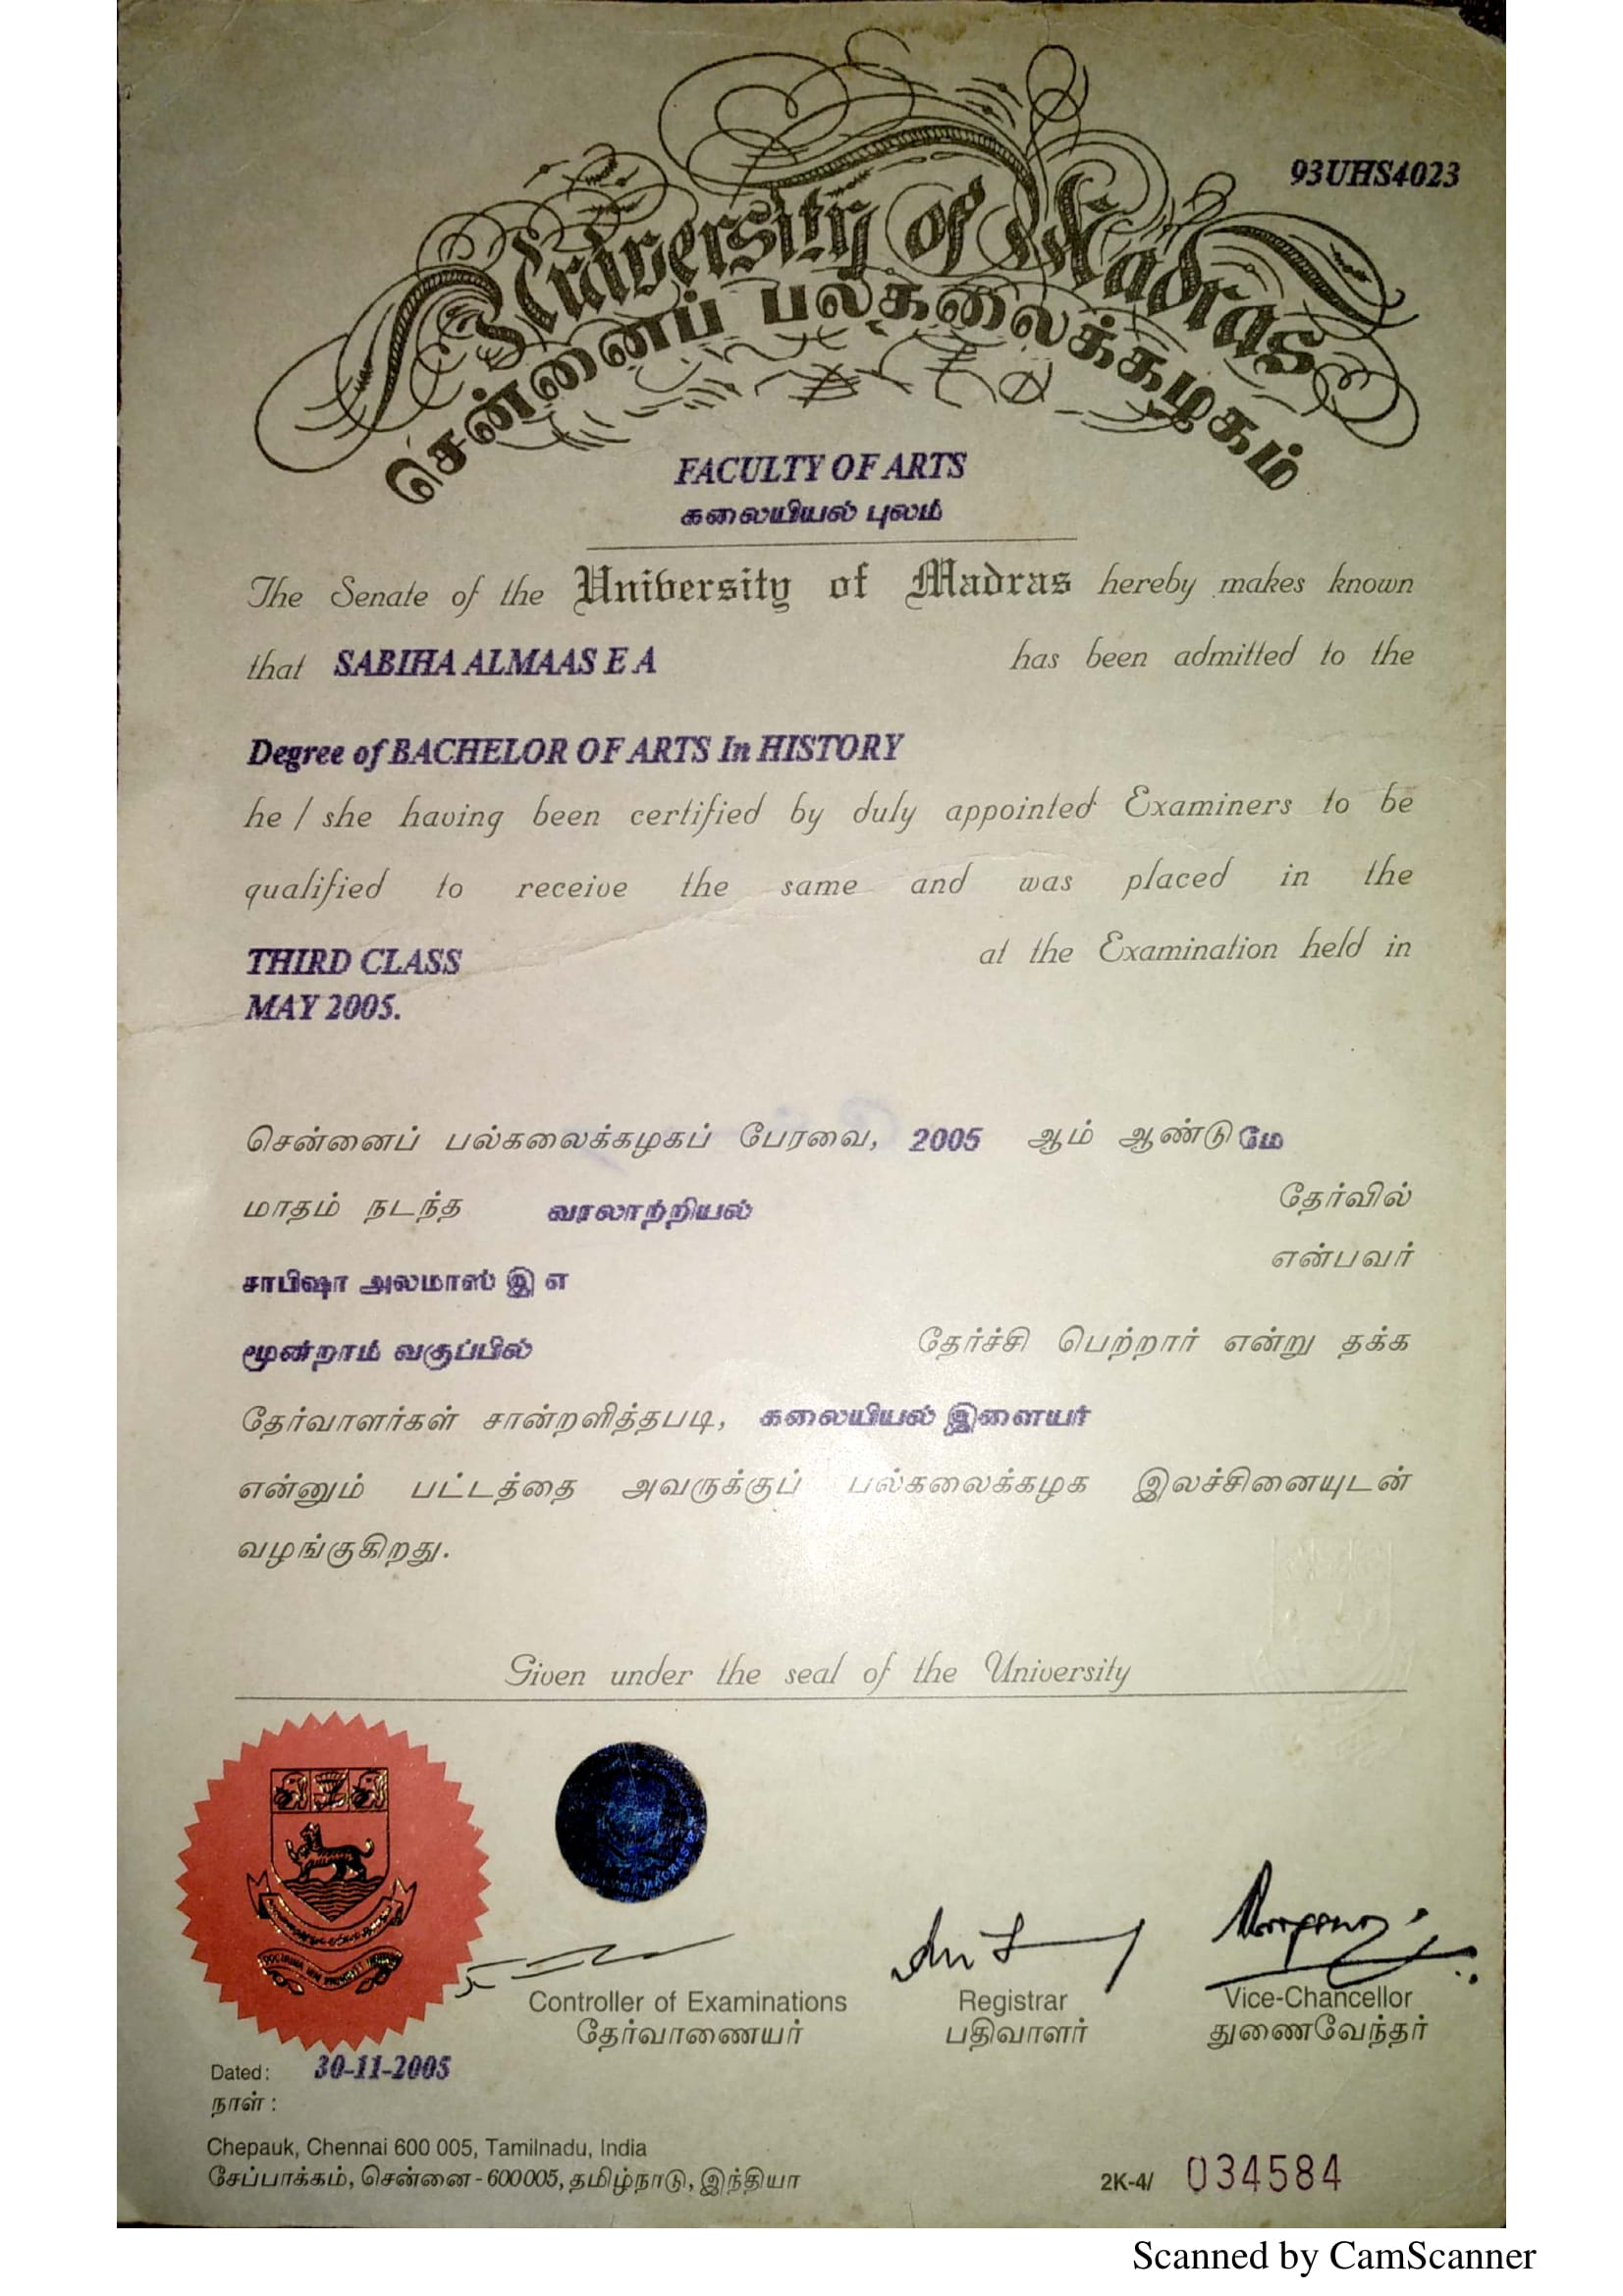 93UHS4023
University of Madras
சென்னைப் பல்கலைக்கழகம்
FACULTY OF ARTS
கலையியல் புலம்
The Senate of the University of Madras hereby makes known
that SABIHA ALMAAS E A has been admitted to the
Degree of BACHELOR OF ARTS In HISTORY
he / she having been certified by duly appointed Examiners to be
qualified to receive the same and was placed in the
THIRD CLASS at the Examination held in
MAY 2005.
சென்னைப் பல்கலைக்கழகப் பேரவை, 2005 ஆம் ஆண்டு மே
மாதம் நடந்த வரலாற்றியல் தேர்வில்
சாபிஷா அலமாஸ் இ எ என்பவர்
மூன்றாம் வகுப்பில் தேர்ச்சி பெற்றார் என்று தக்க
தேர்வாளர்கள் சான்றளித்தபடி, கலையியல் இளையர்
என்னும் பட்டத்தை அவருக்குப் பல்கலைக்கழக இலச்சினையுடன்
வழங்குகிறது.
Given under the seal of the University
Controller of Examinations Registrar Vice-Chancellor
தேர்வாணையர் பதிவாளர் துணைவேந்தர்
Dated: 30-11-2005
நாள் :
Chepauk, Chennai 600 005, Tamilnadu, India
சேப்பாக்கம், சென்னை - 600005, தமிழ்நாடு, இந்தியா
2K-4/ 034584
Scanned by CamScanner